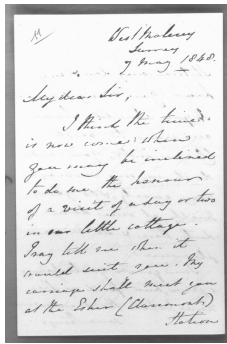 11
West Molesey
Surrey
7 May 1848.
My dear Sir,
I think the time
is now come when
you may be inclined
to do me the honour
of a visit of a day or two
in our little cottage.
Pray tell me when it
would suit you. My
carriage shall meet you
at the Esher (Claremont)
Station